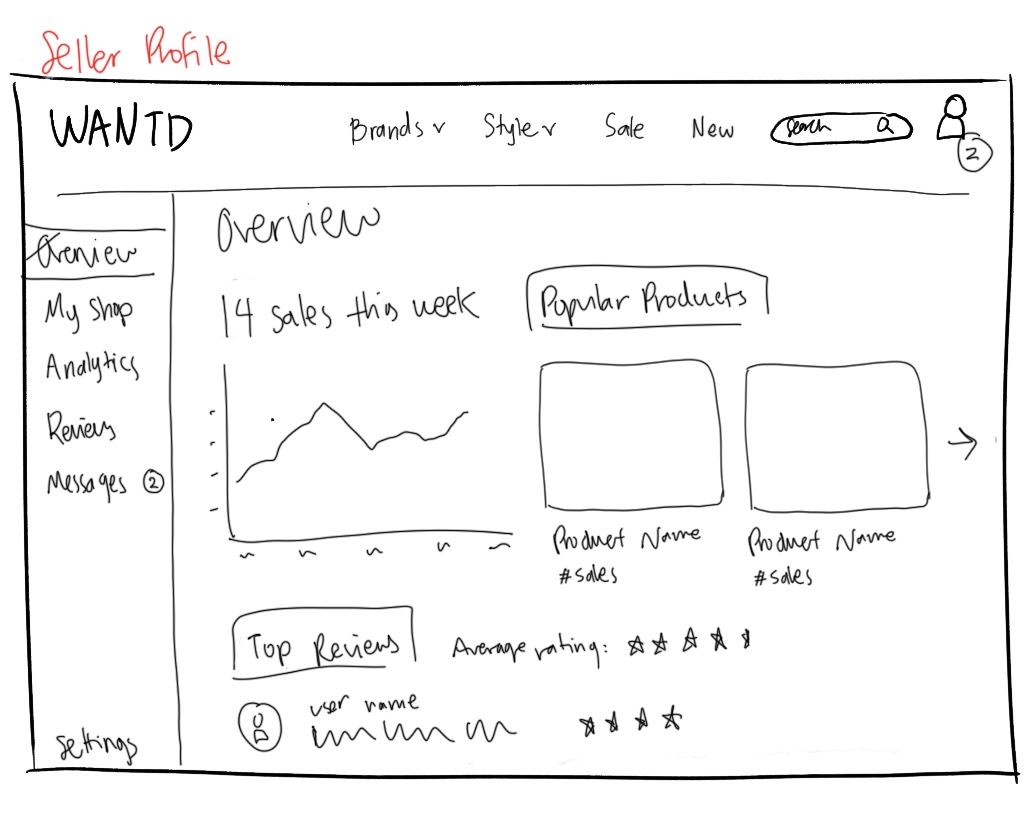 Seller Profile
WANTD
Brands v Style v Sale New search
2
Overview
My Shop
Analytics
Reviews
Messages 2
Settings
Overview
14 sales this week
Popular Products
Product Name
#sales
Product Name
#sales
Top Reviews Average rating:
user name